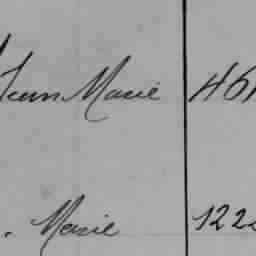 Jean Marie 461
. Marie 122